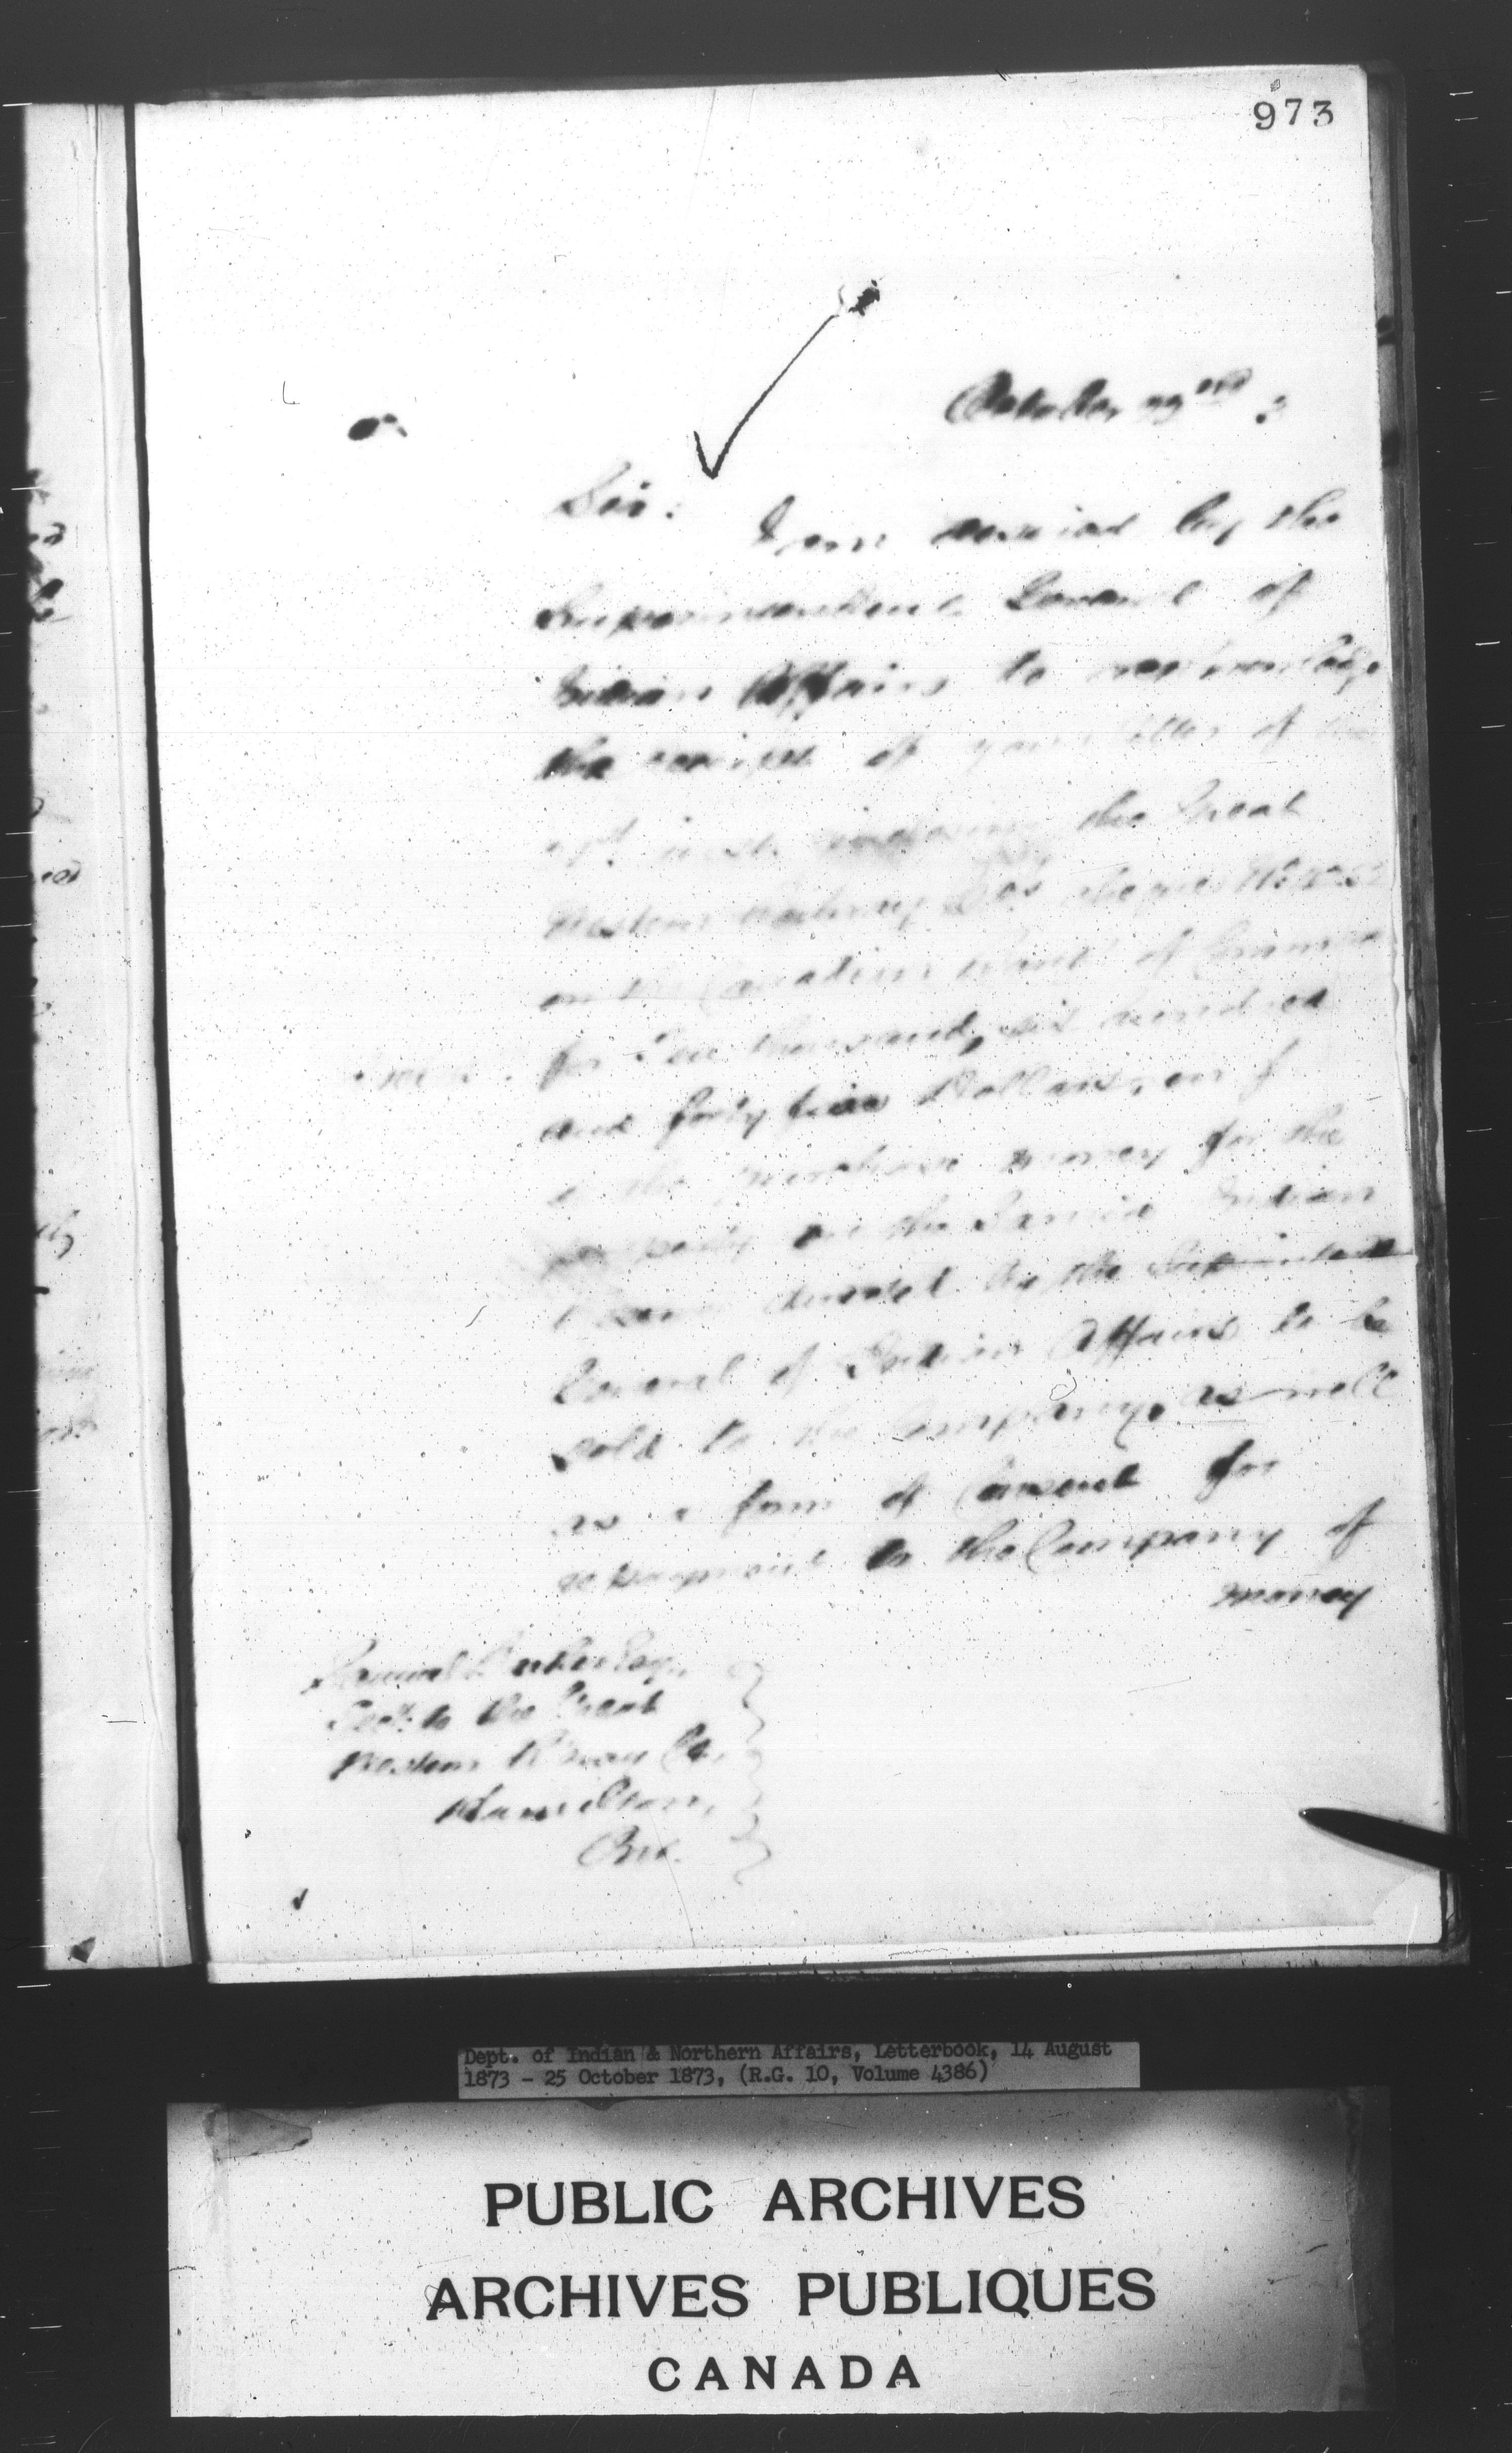 973
October 22nd 3
Sir:
I am desired by the
Superintendent General of
Indian Affairs to acknowledge
the receipt of your letter of the
inst. enclosing the Great
Western Railway Co's cheque
on the Canadian Bank of Commerce
for Ten thousand, six hundred
and forty five Dollars,
the purchase money for the
property on the Sarnia Indian
Reserve by the Superintendent
General of Indian Affairs to be
sold to the Company, as well
as a form of Consent for
repayment to the Company of
money
Samuel Barker Esq.,
Secy. to the Great
Western R'way Co.,
Hamilton,
Ont.
Dept. of Indian & Northern Affairs, Letterbook, 14 August
1873 - 25 October 1873, (R.G. 10, Volume 4386)
PUBLIC ARCHIVES
ARCHIVES PUBLIQUES
CANADA